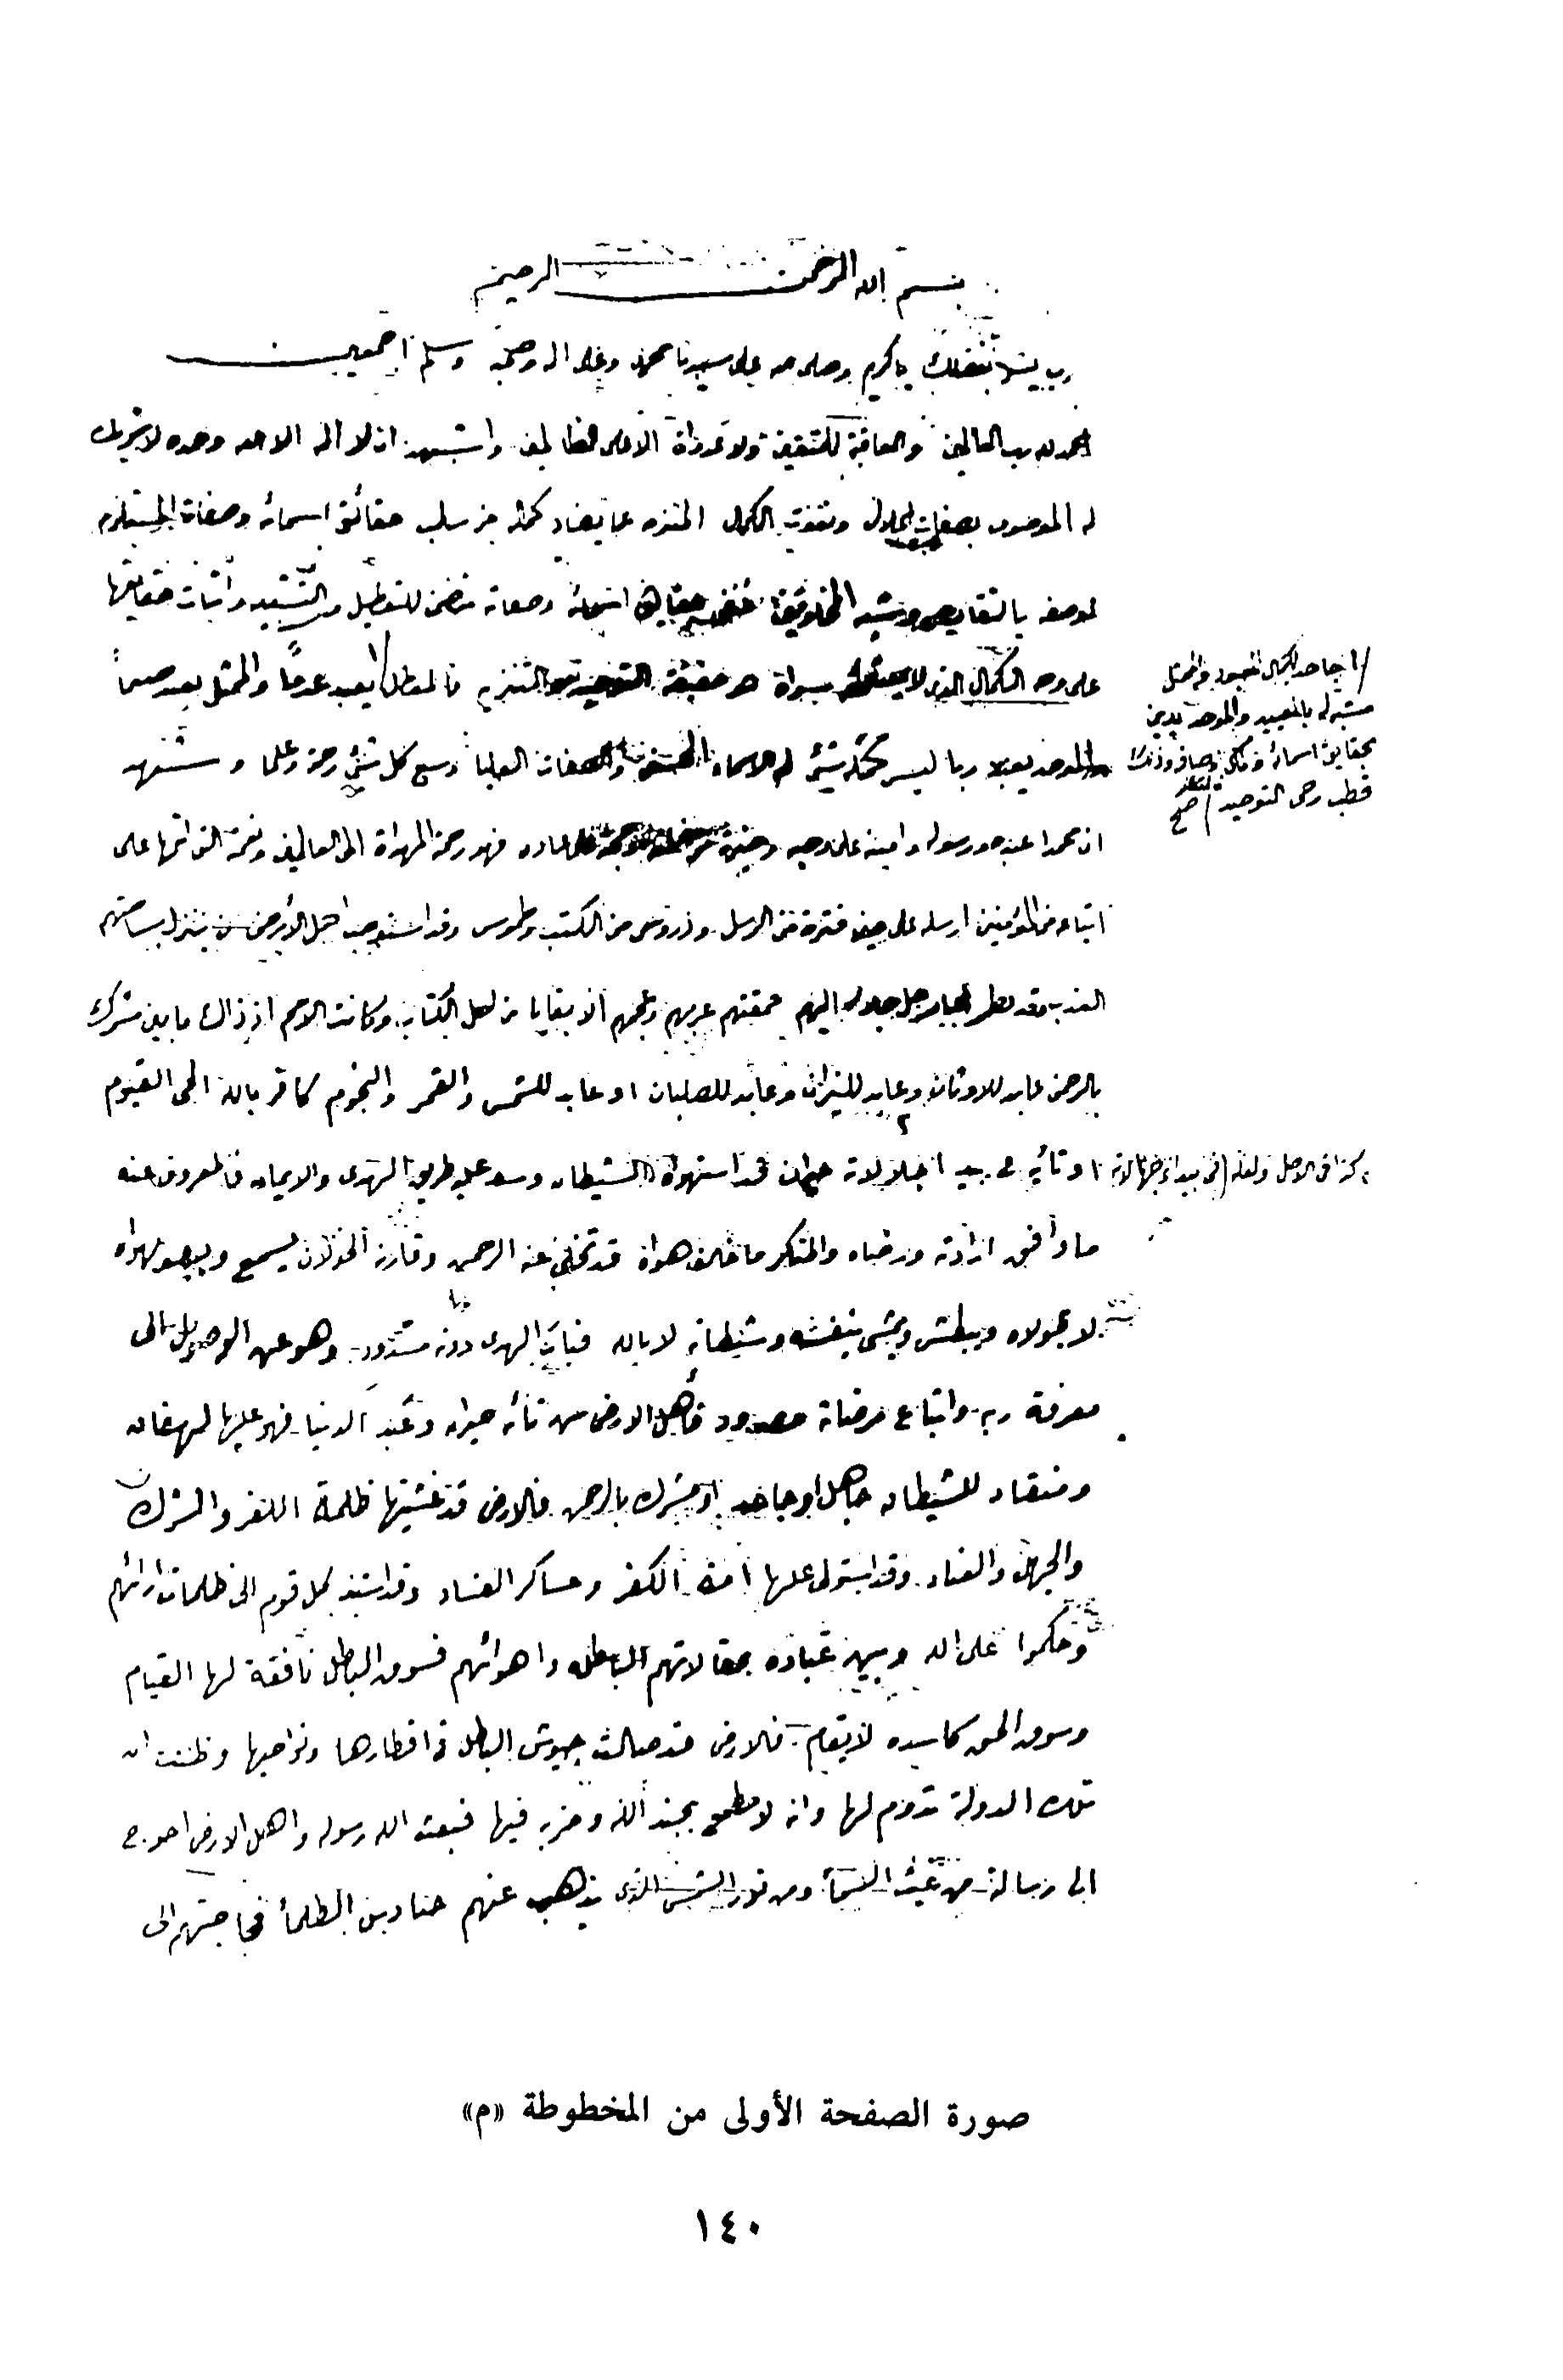 بسم الله الرحمن الرحيم
رب يسر بفضلك يا كريم وصلى الله على سيدنا محمد وعلى اله وصحبه وسلم اجمعين
الحمد لله رب العالمين والعاقبة للمتقين ولا عدوان الا على الظالمين واشهد ان لا اله الا الله وحده لا شريك
له الموصوف بصفات الجلال ونعوت الكمال المنزه عما يضاد كماله من سلب حقائق اسمائه وصفاته المستلزم
لوصفه بالنقايص وشبه المخلوقين فنفي حقايق اسمائه وصفاته متضمن للتعطيل والتشبيه واثبات حقايقها
على وجه الكمال الذي لا يستحقه سواه هو حقيقة التوحيد والتنزيه فالمعطل يعبد عدما والممثل يعبد صنماً
والموحد يعبد ربا ليس كمثله شيء له الاسماء الحسنى والصفات العليا وسع كل شيء رحمة وعلما و شهد
ان محمدا عبده ورسوله وامينه على وحيه وخيرته من خلقه وحجته على عباده فهو رحمة المهداة الى العالمين ونعمته التي اتمها على
اتباعه من المؤمنين ارسله على حين فترة من الرسل ودروس من الكتب وطموس وقد استوجب اهل الأرض ان ينزل بساحتهم
العذاب وقد نظر الجبار جل جلاله اليهم فمقتهم عربهم وعجمهم الا بقايا من اهل الكتاب وكانت الامم اذ ذاك ما بين مشرك
بالرحمن عابد للاوثان وعابد للنيران وعابد للصلبان او عابد للشمس والقمر والنجوم كافر بالله الحي القيوم
او تائه في بيد اجلالاته حيران قد استهواه الشيطان وسد عليه طريق الهدى والايمان فالمعروف عنده
ما وافق ارادته ورضاه والمنكر ما خالف هواه قد تخلى عنه الرحمن وقارنه الخذلان يسمع ويبصر بهواه
لا بمولاه ويبطش ويمشي بنفسه وشيطانه لا بالله فباب الهدى دونه مسدود وهو عن الوصول الى
معرفة ربه واتباع مرضاته مصدود فأهل الارض بين تائه حيران وعبد الدنيا فهو عليها لهفان
ومنقاد للشيطان جاهل او جاحد او مشرك بالرحمن فالارض قد غشيتها ظلمة الكفر والشرك
والجهل والعناد وقد استولى عليها ائمة الكفر وعساكر الفساد وقد استند كل قوم الى ظلمات ارائهم
وحكموا على الله وبين عباده بمقالاتهم الباطله واهوائهم فسوق الباطل نافقة لها القيام
وسوق الحق كاسده لا تقام فالارض قد صالت جيوش الباطل في اقطارها ونواحيها وظنت ان
تلك الدولة تدوم لها وانه لا مطمع بجند الله وحزبه فيها فبعث الله رسوله واهل الارض احوج
الى رسالته من غيث السمأ ومن نور الشمس الذي يذهب عنهم حنادس الظلمأ فحاجتهم الى
جاحد لكمال المعبود والممثل
مشبه له بالعبيد والموحد يدين
بحقايق اسمائه وكمال اوصافه وذلك
قطب رحى التوحيد صح
كذا في الاصل ولعله (في بيداء ضلالاته)
صورة الصفحة الأولى من المخطوطة «م»
١٤٠